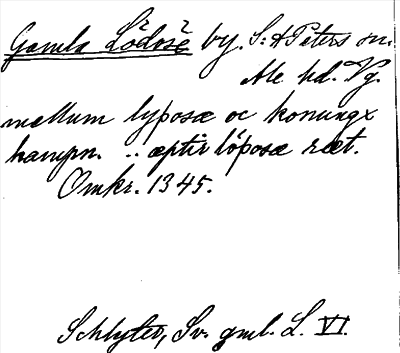 Gamla Lödöse by. S:t Peters sn.
Ale hd. Vg.
mellum lyþosæ oc konungx
hampn. .. æptir löþosæ ræt.
Omkr. 1345.
Schlyter, Sv. gml. L. VI.